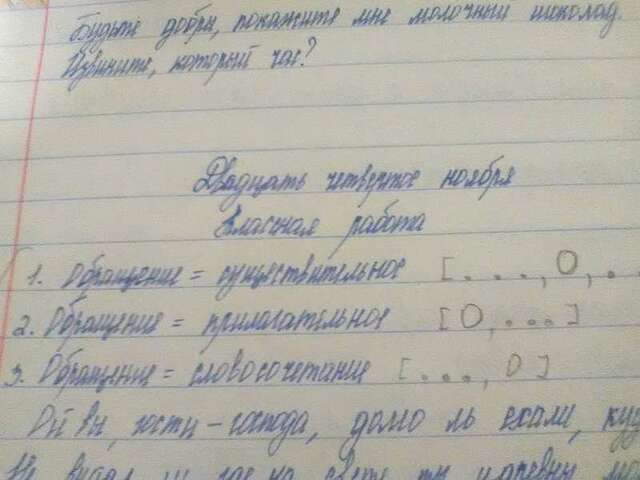 Будьте добры, покажите мне молочный шоколад.
Извините, который час?
Двадцать четвертое ноября
Класная работа
1. Обращение = существительное [. . . , О, .
2. Обращение = прилагательное [О, . . .]
3. Обращение = словосочетание [. . . , О]
Ой вы, гости - господа, долго ль ехали, куд
на свете